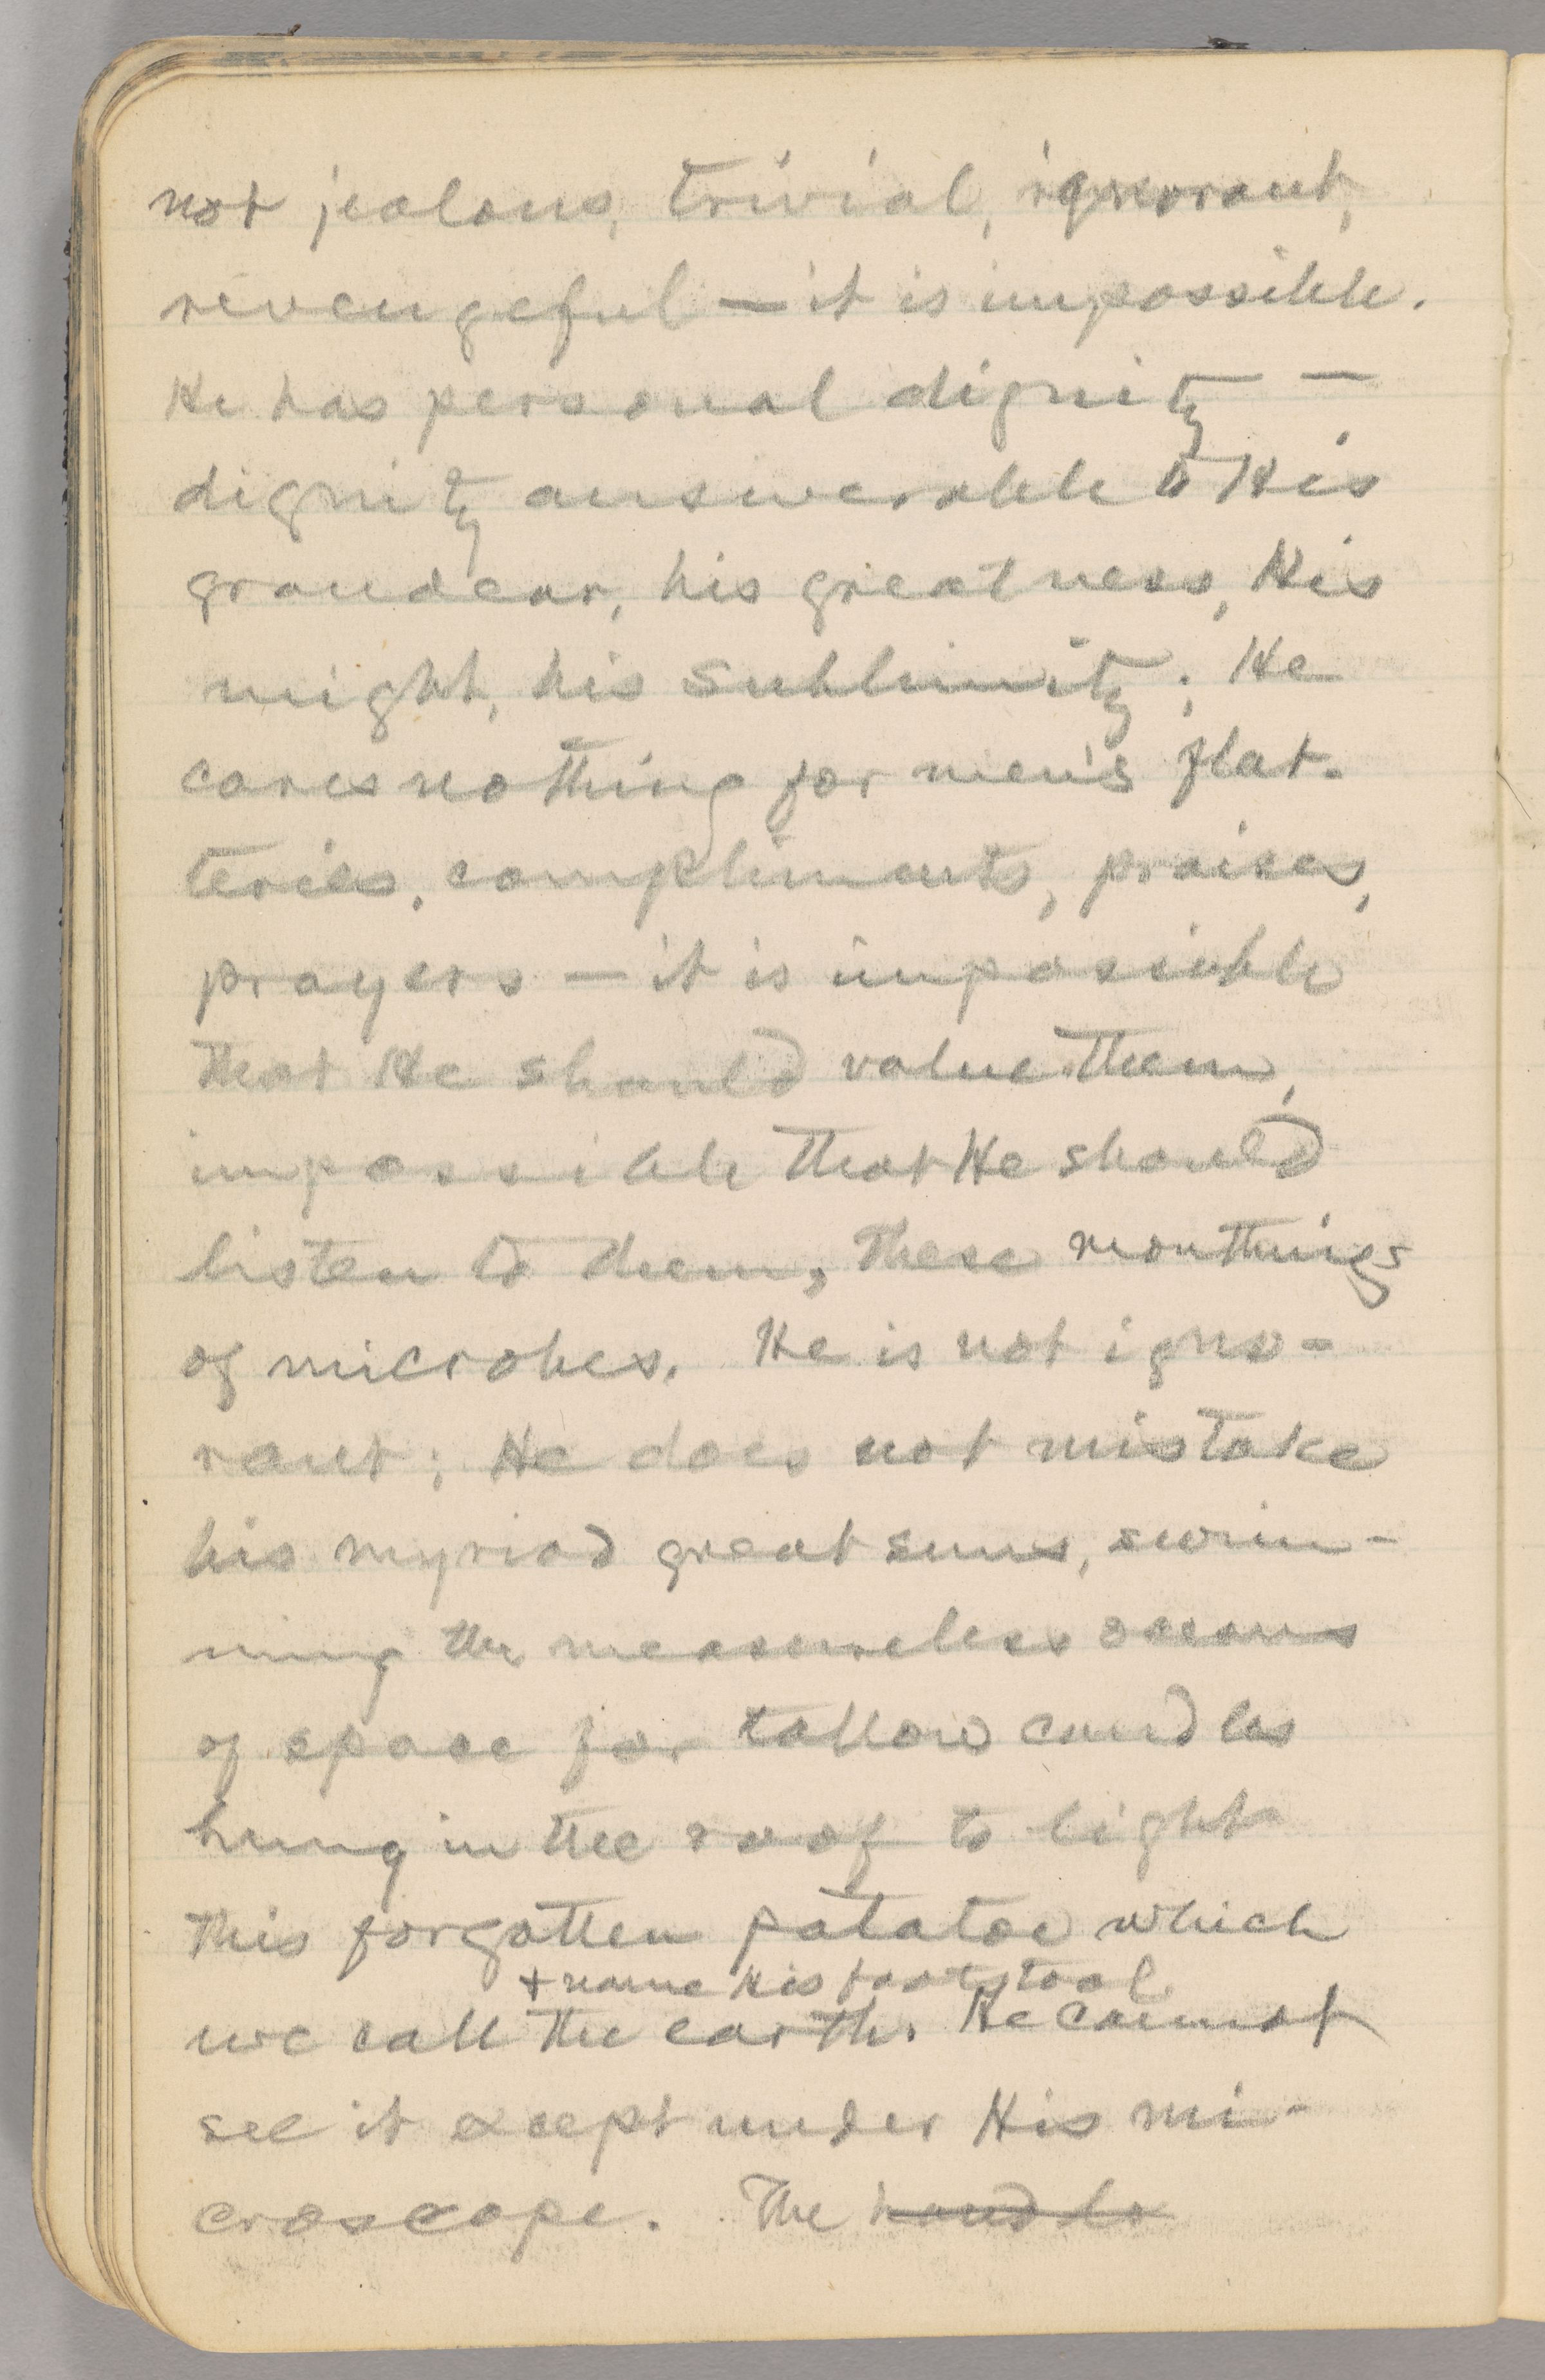 not jealous, trivial, ignorant,
revengeful — it is impossible.
He has personal dignity —
dignity answerable to His
grandeur, his greatness, His
might, his sublimity; He
cares nothing for men's flat-
teries, compliments, praises,
prayers — it is impossible
that He should value them,
impossible that He should
listen to them, these mouthings
of microbes. He is not igno-
rant; He does not mistake
his myriad great suns, swim-
ming the measureless oceans
of space for tallow candles
hung in the roof to light
this forgotten potatoe which
+ name His footstool
we call the earth. He cannot
see it except under His mi-
croscope. The